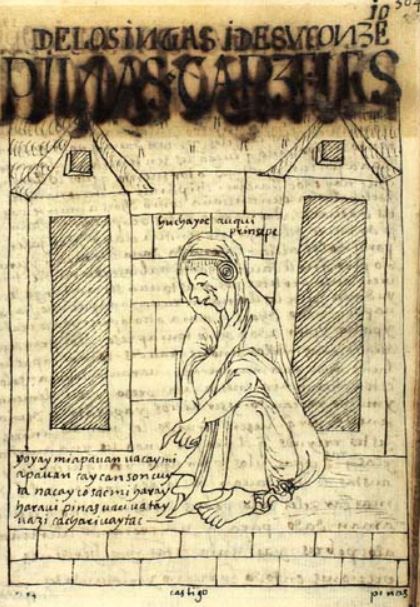 jo 304
DE LOS INGAS I DE SV CONZE
PINAS CARZELES
huchayoc auqui
prinsepe
yoyay miapauan uacaymi
apauan cay can soncuy
ta nacay cosacmi haray
haraui pinas uaci uatay
uazi cachariuaytac
castigo
pinas